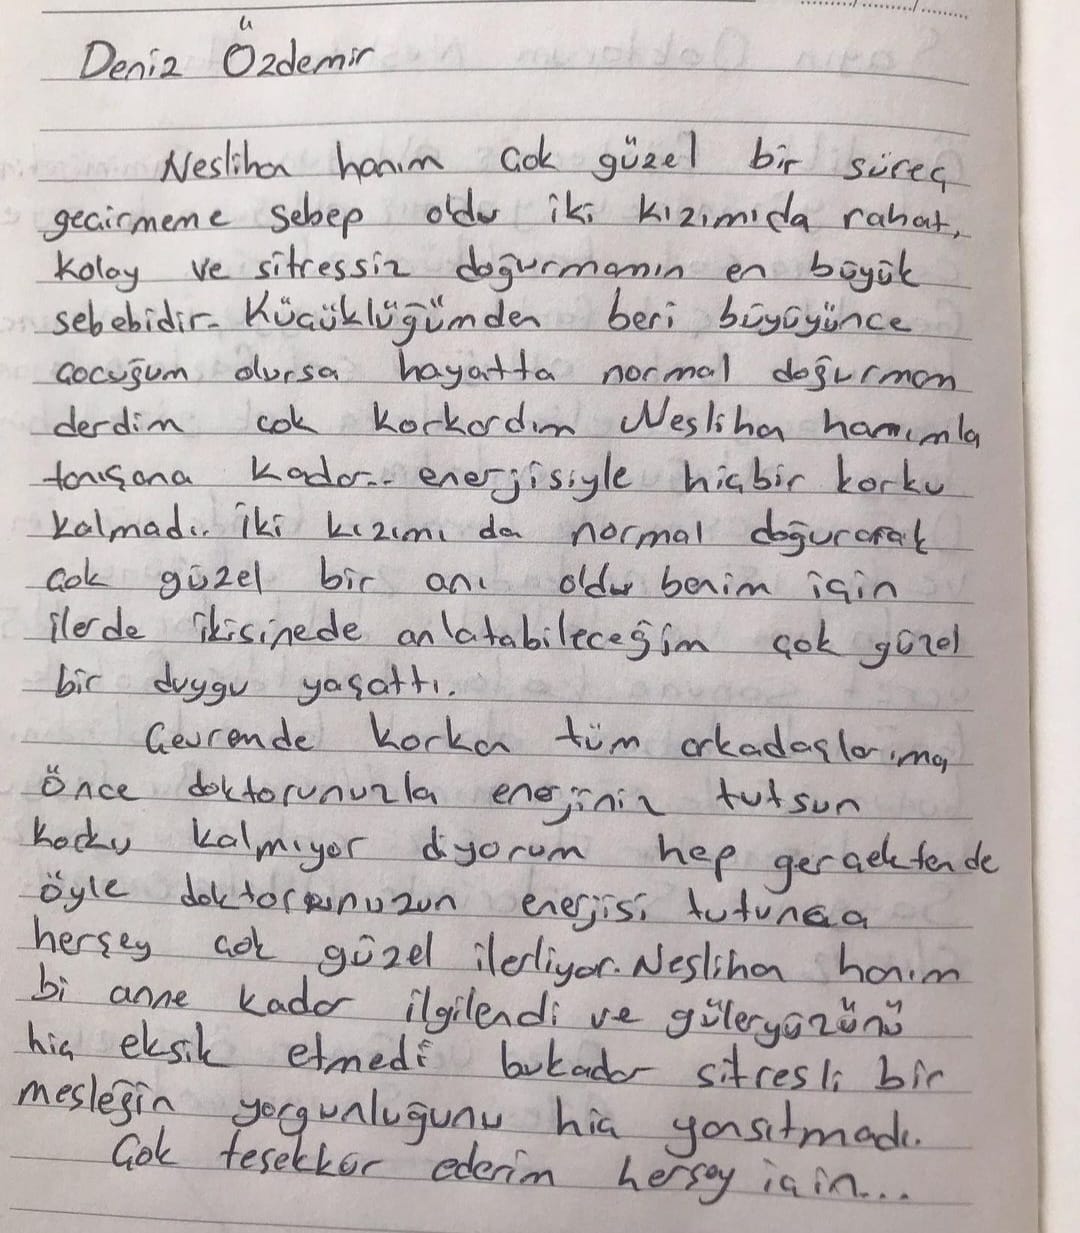 Deniz Özdemir
Neslihan hanım çok güzel bir süreç
geçirmeme sebep oldu iki kızımıda rahat,
kolay ve sitressiz doğurmamın en büyük
sebebidir. Küçüklüğümden beri büyüyünce
çocuğum olursa hayatta normal doğurmam
derdim çok korkardım Neslihan hanımla
tanışana kadar.. energisiyle hiçbir korku
kalmadı.. iki kızımı da normal doğurarak
çok güzel bir anı oldu benim için
ilerde ikisinede anlatabileceğim çok güzel
bir duygu yaşattı.
Çevremde korkan tüm arkadaşlarıma
Önce doktorunuzla enerjiniz tutsun
korku kalmıyor diyorum hep gerçektende
öyle doktorunuzun enerjisi tutunca
herşey çok güzel ilerliyor. Neslihan hanım
bi anne kadar ilgilendi ve güleryüzünü
hiç eksik etmedi bukadar sitresli bir
mesleğin yorgunluğunu hiç yansıtmadı.
Çok teşekkür ederim herşey için...